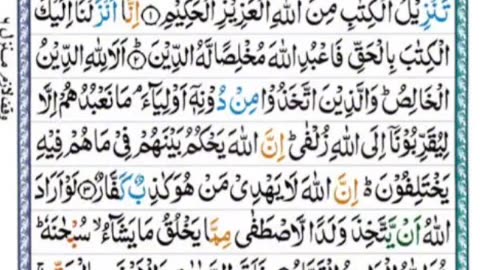 تَنْزِيْلُ الْكِتٰبِ مِنَ اللّٰهِ الْعَزِيْزِ الْحَكِيْمِ ۝۱ اِنَّاۤ اَنْزَلْنَاۤ اِلَيْكَ
الْكِتٰبَ بِالْحَقِّ فَاعْبُدِ اللّٰهَ مُخْلِصًا لَّهُ الدِّيْنَ ۝۲ اَلَا لِلّٰهِ الدِّيْنُ
الْخَالِصُ ؕ وَالَّذِيْنَ اتَّخَذُوْا مِنْ دُوْنِهٖۤ اَوْلِيَآءَ ۘ مَا نَعْبُدُهُمْ اِلَّا
لِيُقَرِّبُوْنَاۤ اِلَى اللّٰهِ زُلْفٰى ؕ اِنَّ اللّٰهَ يَحْكُمُ بَيْنَهُمْ فِيْ مَا هُمْ فِيْهِ
يَخْتَلِفُوْنَ ؕ اِنَّ اللّٰهَ لَا يَهْدِيْ مَنْ هُوَ كٰذِبٌ كَفَّارٌ ۝۳ لَوْ اَرَادَ
اللّٰهُ اَنْ يَّتَّخِذَ وَلَدًا لَّاصْطَفٰى مِمَّا يَخْلُقُ مَا يَشَآءُ ۙ سُبْحٰنَهٗ ؕ